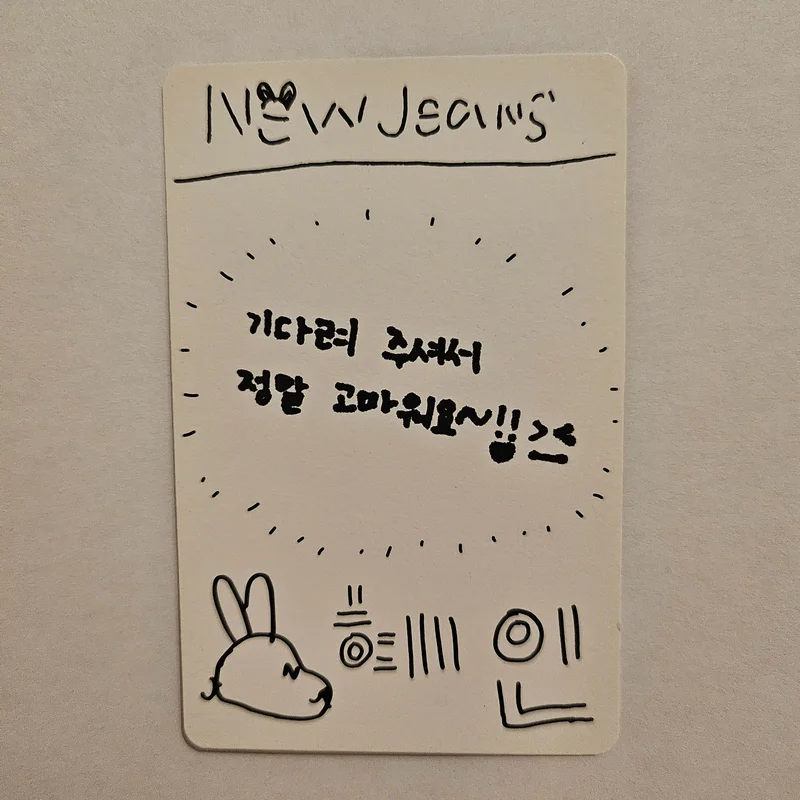 NewJeans
기다려 주셔서
정말 고마워요~!! ><
혜인